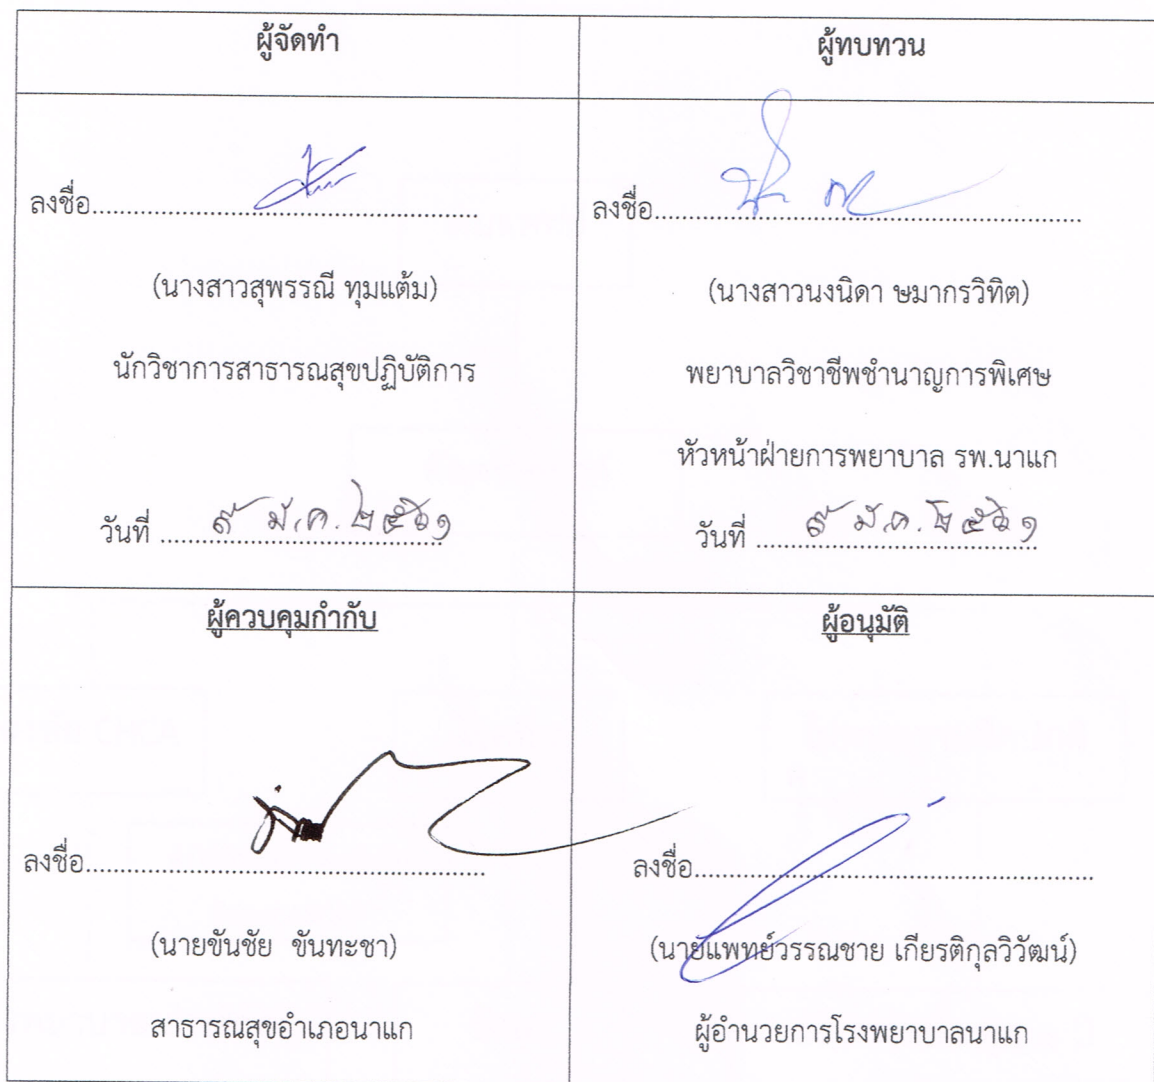 ผู้จัดทำ
ผู้ทบทวน
ลงชื่อ
(นางสาวสุพรรณี ทุมแต้ม)
นักวิชาการสาธารณสุขปฏิบัติการ
วันที่ ๙ มี.ค. ๒๕๖๑
ลงชื่อ
(นางสาวนงนิดา ษมากรวิทิต)
พยาบาลวิชาชีพชำนาญการพิเศษ
หัวหน้าฝ่ายการพยาบาล รพ.นาแก
วันที่ ๙ มี.ค. ๒๕๖๑
ผู้ควบคุมกำกับ
ผู้อนุมัติ
ลงชื่อ
(นายขันชัย ขันทะชา)
สาธารณสุขอำเภอนาแก
ลงชื่อ
(นายแพทย์วรรณชาย เกียรติกุลวิวัฒน์)
ผู้อำนวยการโรงพยาบาลนาแก